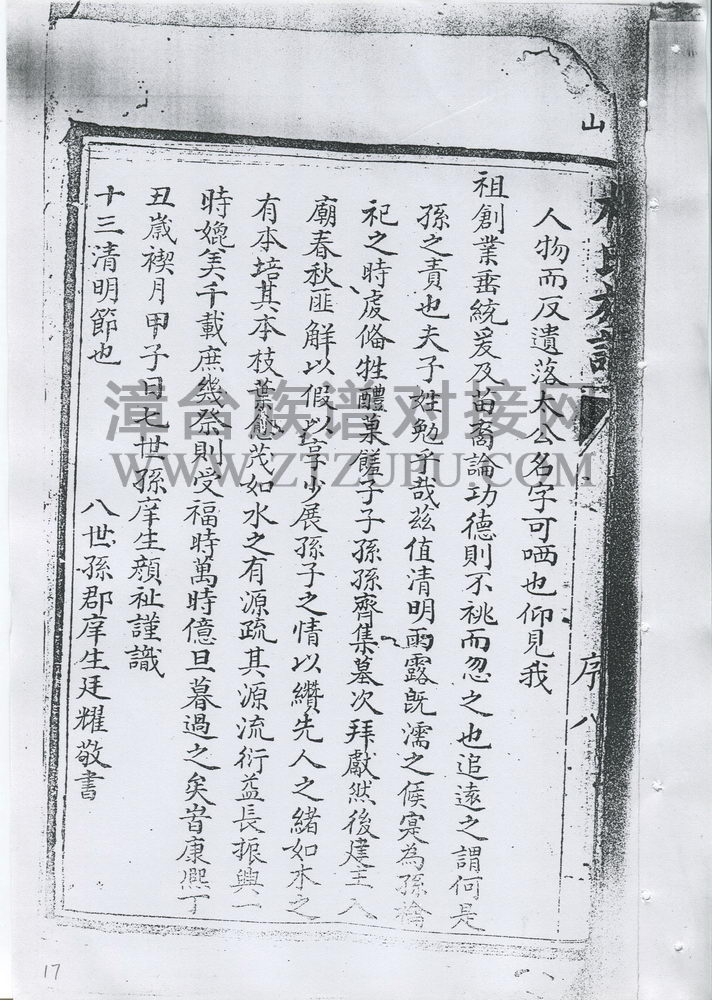 山
林氏族譜
序 八
人物而反遺落太公名字可哂也仰見我
祖創業垂統爰及苗裔論功德則不祧而忽之也追遠之謂何是
孫之責也夫子姓勉乎哉茲值清明雨露既濡之候寔為孫
祀之時虔俻牲醴菓饈子子孫孫齊集墓次拜獻然後建主入
廟春秋匪解以假以享少展孫子之情以纘先人之緒如木之
有本培其本枝葉愈茂如水之有源疏其源流衍益長振興一
時媲美千載庶幾祭則受福時萬時億旦暮過之矣旹康熙丁
丑歲禊月甲子日七世孫庠生顏祉謹識
十三清明節也
八世孫郡庠生廷耀敬書
漳台族谱对接网
WWW.ZTZUPU.COM
17